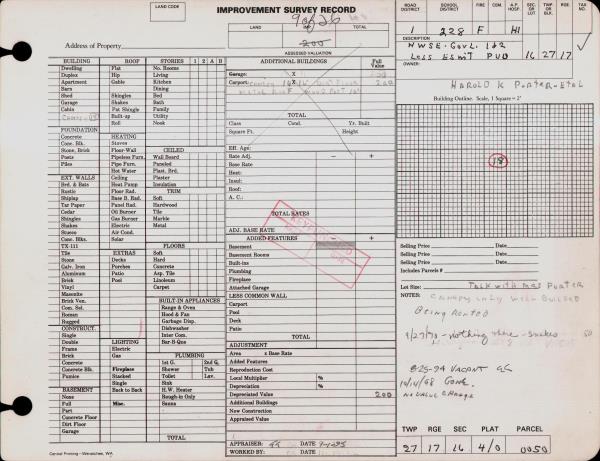 LAND CODE
IMPROVEMENT SURVEY RECORD
9 of 26
LAND
TOTAL
200
ASSESSED VALUATION
Address of Property
ROAD DISTRICT
SCHOOL DISTRICT
A.P. HOSP.
SEC OR LOT
TWP OR BLK.
RGE
TAX NO.
1 228 F H1
DESCRIPTION
NWSE. GovL. 1&2
Less Esmt PUD 16 27 17
OWNER:
HAROLD K PORTER-ETAL
Building Outline. Scale, 1 Square = 2'
18
BUILDING
Dwelling
Duplex
Apartment
Barn
Shed
Garage
Cabin
ROOF
Flat
Hip
Gable
Shingles
Shakes
Pat Shingle
Built-up
Roll
STORIES 1 2 A B
No. Rooms
Living
Kitchen
Dining
Bed
Bath
Family
Utility
Nook
FOUNDATION
Concrete
Conc. Blk.
Stone, Brick
Posts
Piles
HEATING
Stoves
Floor-Wall
Pipeless Furn.
Pipe Furn.
Hot Water
Ceiling
Heat Pump
Floor Rad.
Base B. Rad.
Oil Burner
Gas Burner
Electric
Air Cond.
Solar
CEILED
Wall Board
Paneled
Plast. Brd.
Plaster
Insulation
EXT. WALLS
Brd. & Bats
Rustic
Shiplap
Tar Paper
Cedar
Shingles
Shakes
Stucco
Conc. Blks.
TX-111
Tile
Stone
Galv. Iron
Aluminum
Brick
Vinyl
Masonite
Brick Ven.
Com. Sel.
Roman
Rugged
TRIM
Soft
Hardwood
Tile
Marble
Metal
FLOORS
Soft
Hard
Concrete
Asp. Tile
Linoleum
Carpet
EXTRAS
Decks
Porches
Patio
Pool
BUILT-IN APPLIANCES
Range & Oven
Hood & Fan
Garbage Disp.
Dishwasher
Inter Com.
Bar-B-Que
CONSTRUCT.
Single
Double
Frame
Brick
Concrete
Concrete Blk.
Pumice
LIGHTING
Electric
Gas
Fireplace
Stacked
Single
Back to Back
Misc.
PLUMBING
1st G. 2nd G.
Shower Tub
Toilet Lav.
Sink
H.W. Heater
Rough-in Only
Sauna
BASEMENT
None
Full
Part
Concrete Floor
Dirt Floor
Garage
TOTAL
ADDITIONAL BUILDINGS
Full Value
Garage: X
Carport:
200
TOTAL
Class Cond. Yr. Built
Square Ft. Height
Eff. Age:
Rate Adj. — +
Base Rate
Heat:
Insul:
Roof:
A. C.:
TOTAL RATES
ADJ. BASE RATE
ADDED FEATURES — +
Basement
Basement Rooms
Built-ins
Plumbing
Fireplace
Attached Garage
LESS COMMON WALL
Carport
Pool
Deck
Patio
TOTAL
ADJUSTMENT
Area x Base Rate
Added Features
Reproduction Cost
Local Multiplier %
Depreciation %
Depreciated Value 200
Additional Buildings
New Construction
Appraised Value
APPRAISER: DATE
WORKED BY: DATE
Selling Price Date
Selling Price Date
Selling Price Date
Includes Parcels #
Lot Size: Talk with Mrs Porter
NOTES: Canopy only
Being Rented
9/27/90 - nothing there -
8-25-94 VACANT
10/14/08 GONE.
No VALUE CHANGE
TWP RGE SEC PARCEL
27 17 16 4/0 0050
Central Printing - Wenatchee, WA